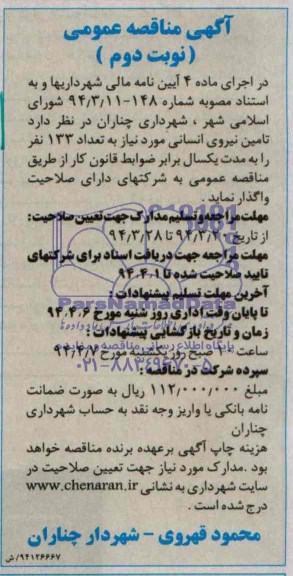 آگهی مناقصه عمومی
( نوبت دوم )
در اجرای ماده ۴ آیین نامه مالی شهرداریها و به
استناد مصوبه شماره ۱۴۸-۹۴/۳/۱۱ شورای
اسلامی شهر ، شهرداری چناران در نظر دارد
تامین نیروی انسانی مورد نیاز به تعداد ۱۳۳ نفر
را به مدت یکسال برابر ضوابط قانون کار از طریق
مناقصه عمومی به شرکتهای دارای صلاحیت
واگذار نماید .
مهلت مراجعه و تسلیم مدارک جهت تعیین صلاحیت :
از تاریخ تا ۹۴/۳/۲۸
مهلت مراجعه جهت دریافت اسناد برای شرکتهای
تایید صلاحیت شده تا ۹۴-۴-۱
آخرین مهلت تسلیم پیشنهادات :
تا پایان وقت اداری روز شنبه مورخ ۹۴,۴,۶
زمان و تاریخ بازگشایی پیشنهادات :
ساعت ۱۰ صبح روز یکشنبه مورخ ۹۴/۴/۷
سپرده شرکت در مناقصه :
مبلغ ۱۱۲,۰۰۰,۰۰۰ ریال به صورت ضمانت
نامه بانکی یا واریز وجه نقد به حساب شهرداری
چناران
هزینه چاپ آگهی برعهده برنده مناقصه خواهد
بود .مدارک مورد نیاز جهت تعیین صلاحیت در
سایت شهرداری به نشانی www.chenaran.ir
درج شده است .
محمود قهروی - شهردار چناران
۹۴۱۲۶۶۶۷/ش
ParsNamadData
پایگاه اطلاع رسانی مناقصه و مزایده